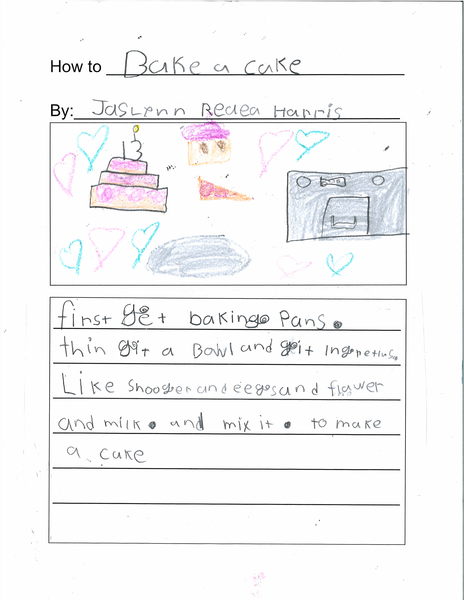 How to Bake a cake
By: Jaslynn Redea Harris
13
first get baking Pans.
thin git a Bowl and git
Like shooger and eegs and flawer
and milk. and mix it. to make
a cake